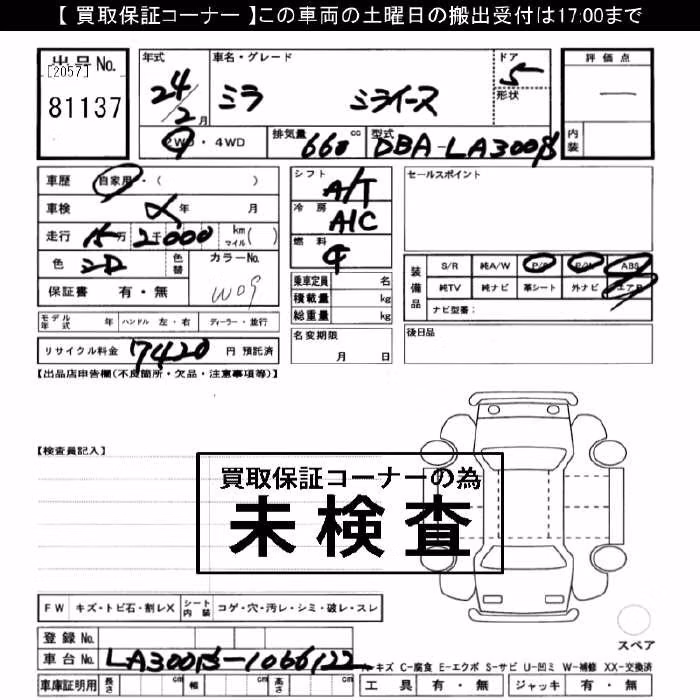 【 買取保証コーナー 】この車両の土曜日の搬出受付は17:00まで
出品No.
[2057]
81137
年式 車名・グレード ドア 評価点
24/2月 ミラ ミライース 5 —
形状
2WD・4WD 排気量 660 cc 型式 DBA-LA300S 内装
車歴 自家用・( )
車検 年 月
走行 15万 2千000 km マイル( )
色 シロ 色替 カラーNo. W09
保証書 有・無
シフト A/T
冷房 A/C
燃料
乗車定員 名
積載量 kg
総重量 kg
セールスポイント
装備品 S/R 純A/W P/S P/W ABS
純TV 純ナビ 革シート 外ナビ エアB
ナビ型番:
モデル年式 年 ハンドル 左・右 ディーラー・並行
名変期限 月 日
後日品
リサイクル料金 7420 円 預託済
【出品店申告欄(不良箇所・欠品・注意事項等)】
【検査員記入】
買取保証コーナーの為
未検査
FW キズ・トビ石・割レX シート内装 コゲ・穴・汚レ・シミ・破レ・スレ
登録No.
車台No. LA300S-1066122
車庫証明用 長さ cm 幅 cm 高さ cm
スペア
キズ C-腐食 E-エクボ S-サビ U-凹ミ W-補修 XX-交換済
工具 有・無 ジャッキ 有・無